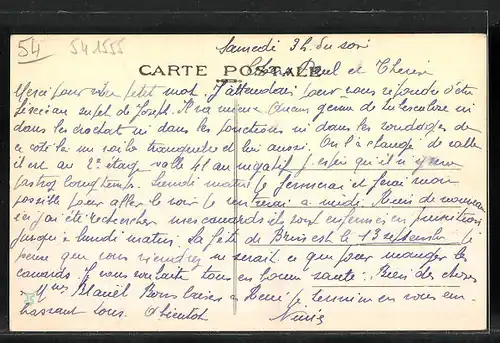 54 541555
Samedi 3h. du soir
Chers Paul et Thérèse
CARTE POSTALE
Merci pour votre petit mot. J'attendais pour vous répondre d'être
au sujet de Joseph. Il va mieux aucun germe de tuberculose ni
dans les crachat ni dans les ponctions ni dans les sondages de
ce coté là me voila tranquille et lui aussi. On l'a changé de salle
il est au 2e étage salle 41 au négatif j'espère qu'il n'y
pas trop longtemps. Lundi matin je et ferai mon
possible pour aller le voir je rentrerai a midi. Rien de nouveau
ici j'ai été rechercher mes canards ils sont enfermés en punition
jusqu'a lundi matin. La fête de est le 13 septembre je
pense que vous viendrez ne serait ce que pour manger les
canards. Je vous souhaite tous en bonne santé. Bien des choses
a Bons baisers a je termine en vous em-
brassant tous. A bientot